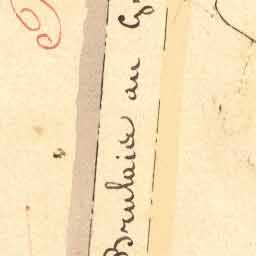 Brulaie au